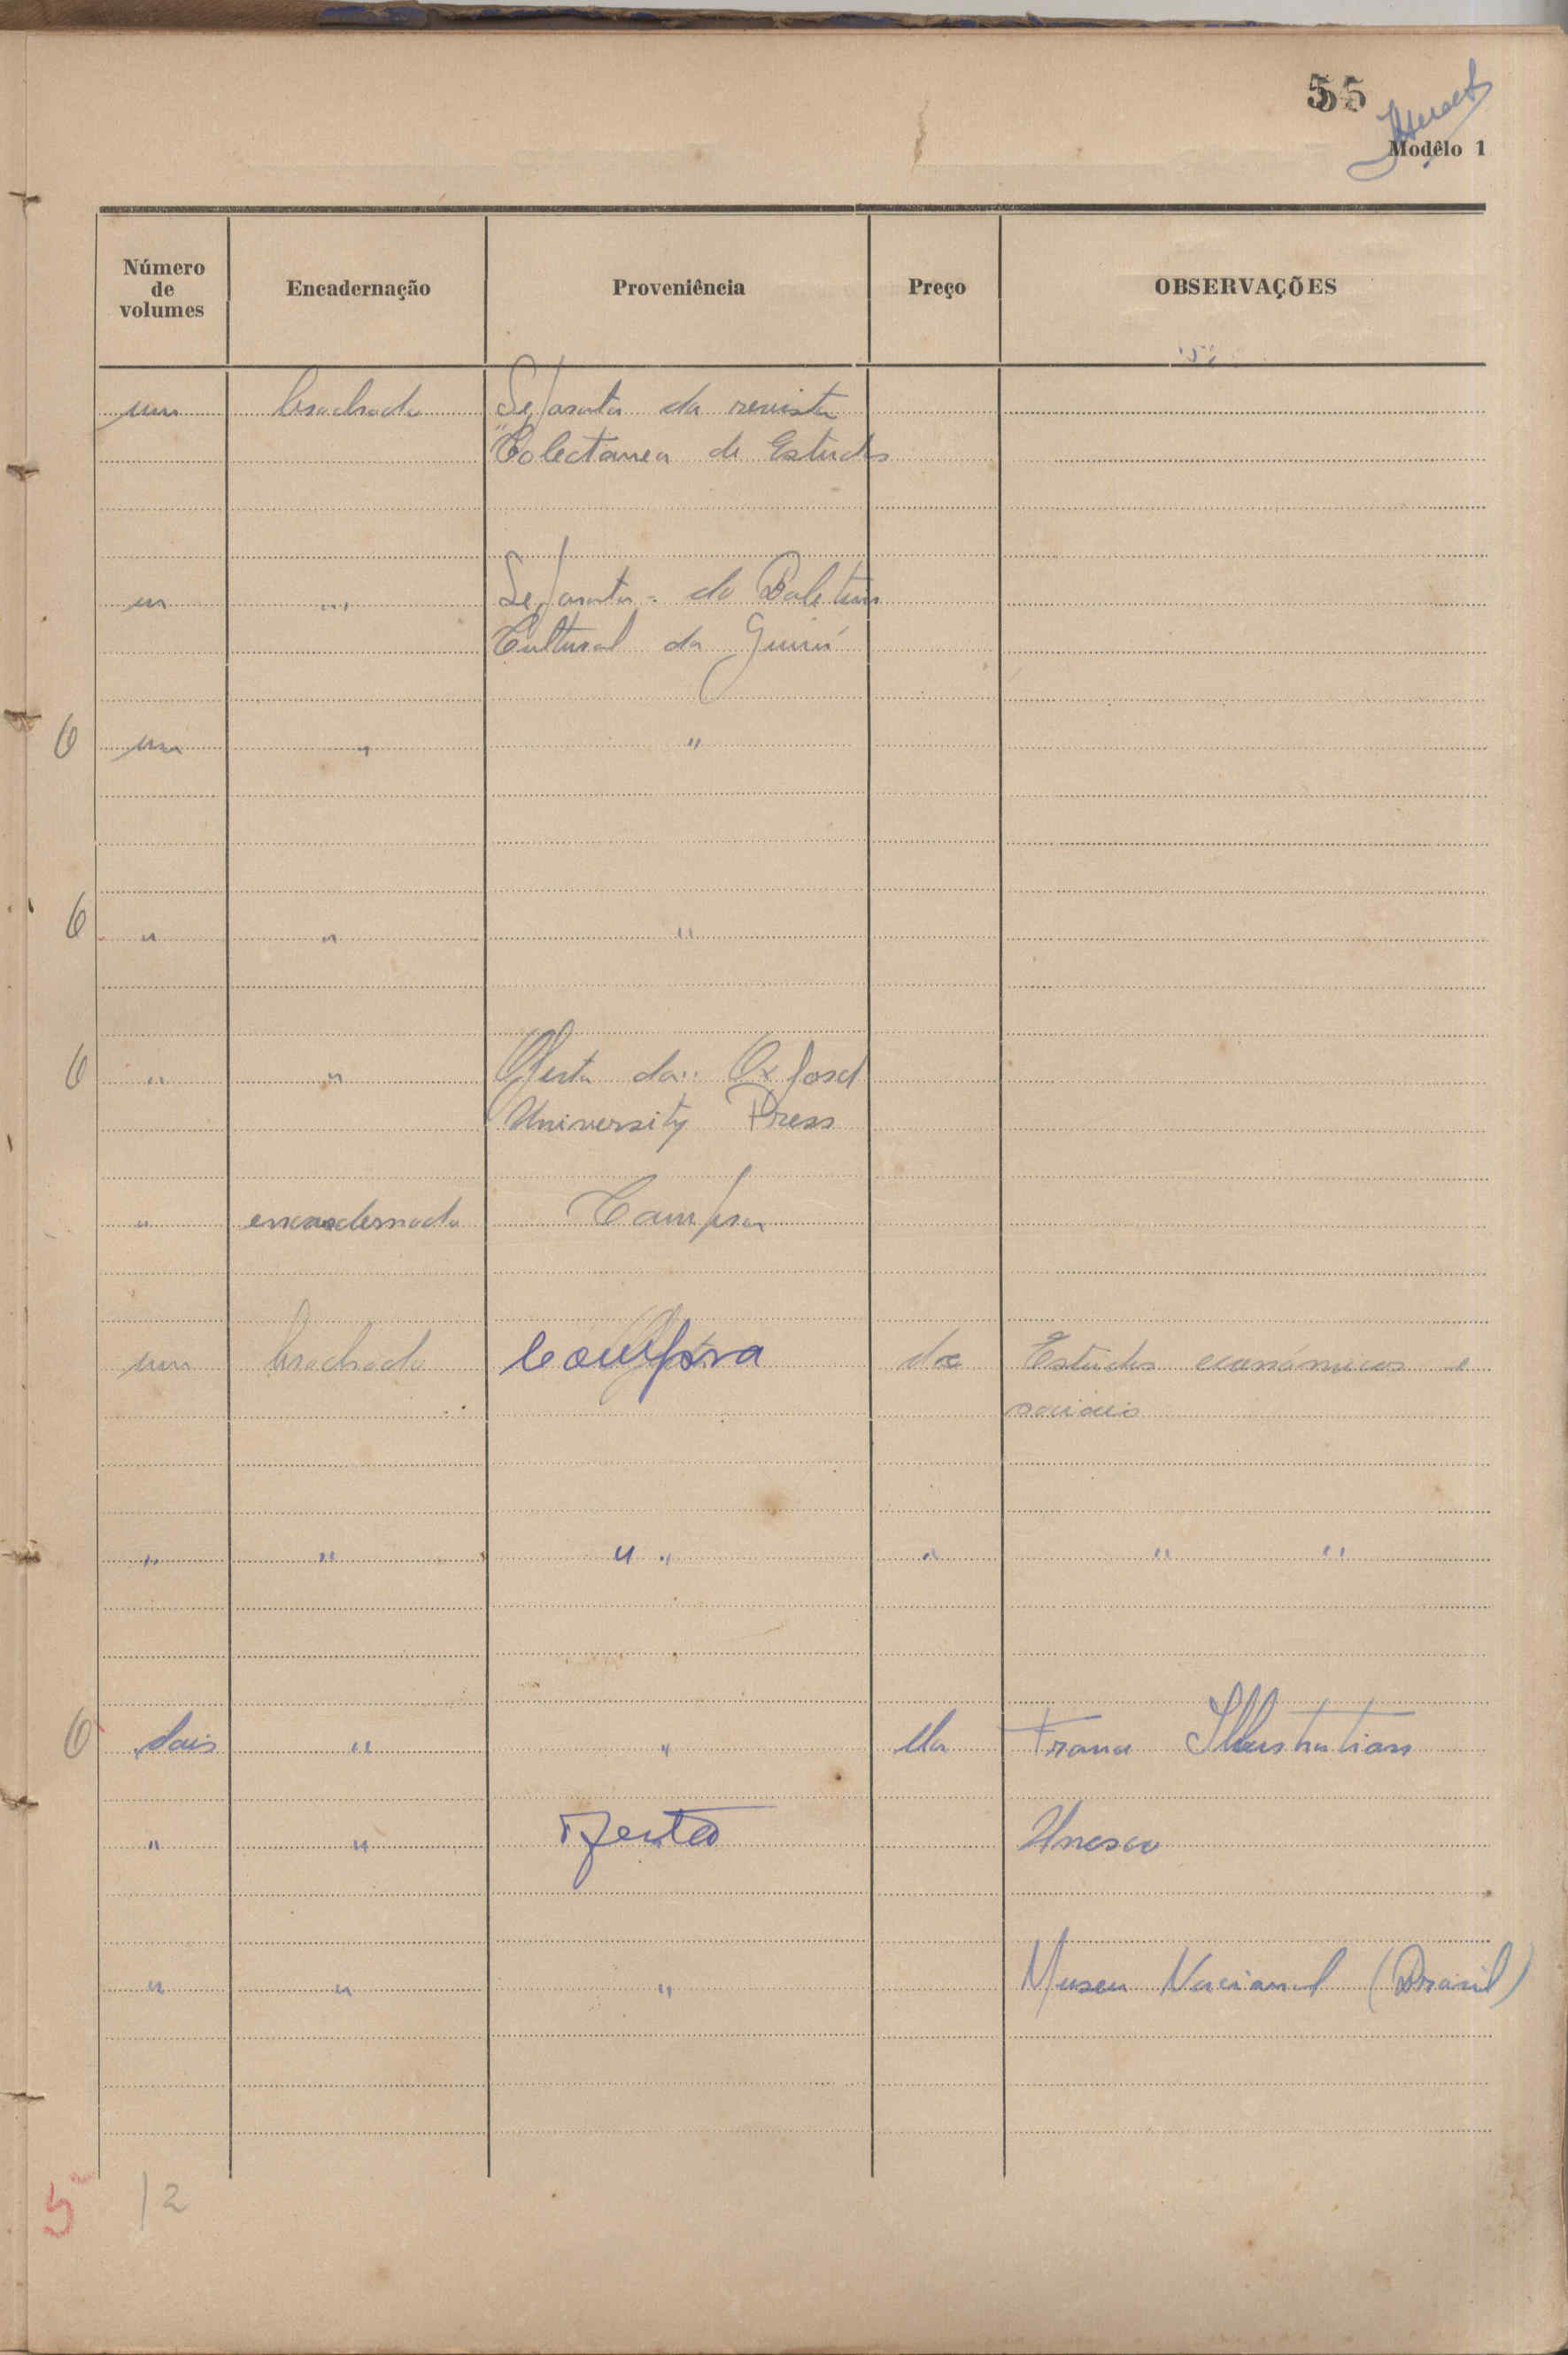 55
Modêlo 1
Número de volumes Encadernação Proveniência Preço OBSERVAÇÕES
um brochado Separata da revista
"Colectanea de Estudos
um " Separata do Boletim
Cultural da Guiné
6 um " "
6 " " "
6 " " Oferta da Oxford
University Press
" encadernado Compra
um brochado compra de Estudos económicos e
sociais
" " " " " " "
6 dois " " da France Illustration
" " oferta Unesco
" " " Museu Nacional (Brasil)
5 12